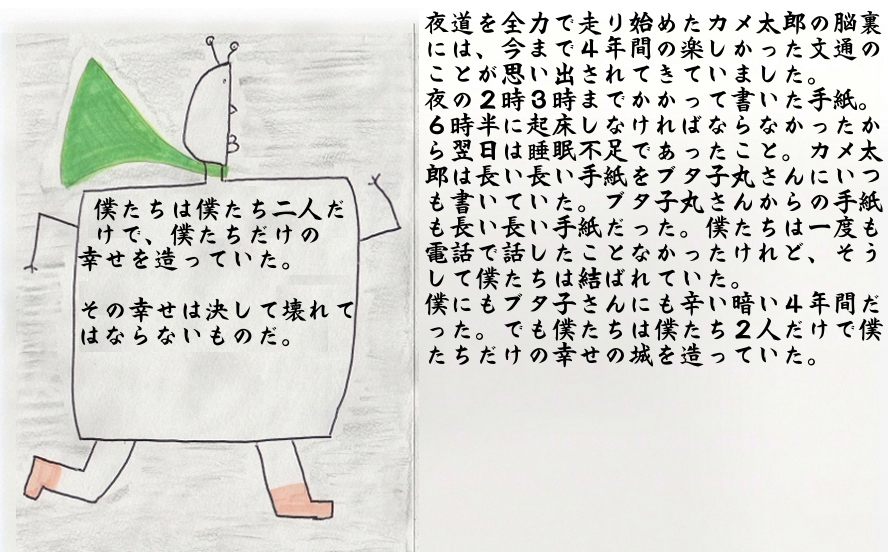 僕たちは僕たち二人だ
けで、僕たちだけの
幸せを造っていた。
その幸せは決して壊れて
はならないものだ。
夜道を全力で走り始めたカメ太郎の脳裏
には、今まで４年間の楽しかった文通の
ことが思い出されてきていました。
夜の２時３時までかかって書いた手紙。
６時半に起床しなければならなかったか
ら翌日は睡眠不足であったこと。カメ太
郎は長い長い手紙をブタ子丸さんにいつ
も書いていた。ブタ子丸さんからの手紙
も長い長い手紙だった。僕たちは一度も
電話で話したことなかったけれど、そう
して僕たちは結ばれていた。
僕にもブタ子さんにも辛い暗い４年間だ
った。でも僕たちは僕たち２人だけで僕
たちだけの幸せの城を造っていた。